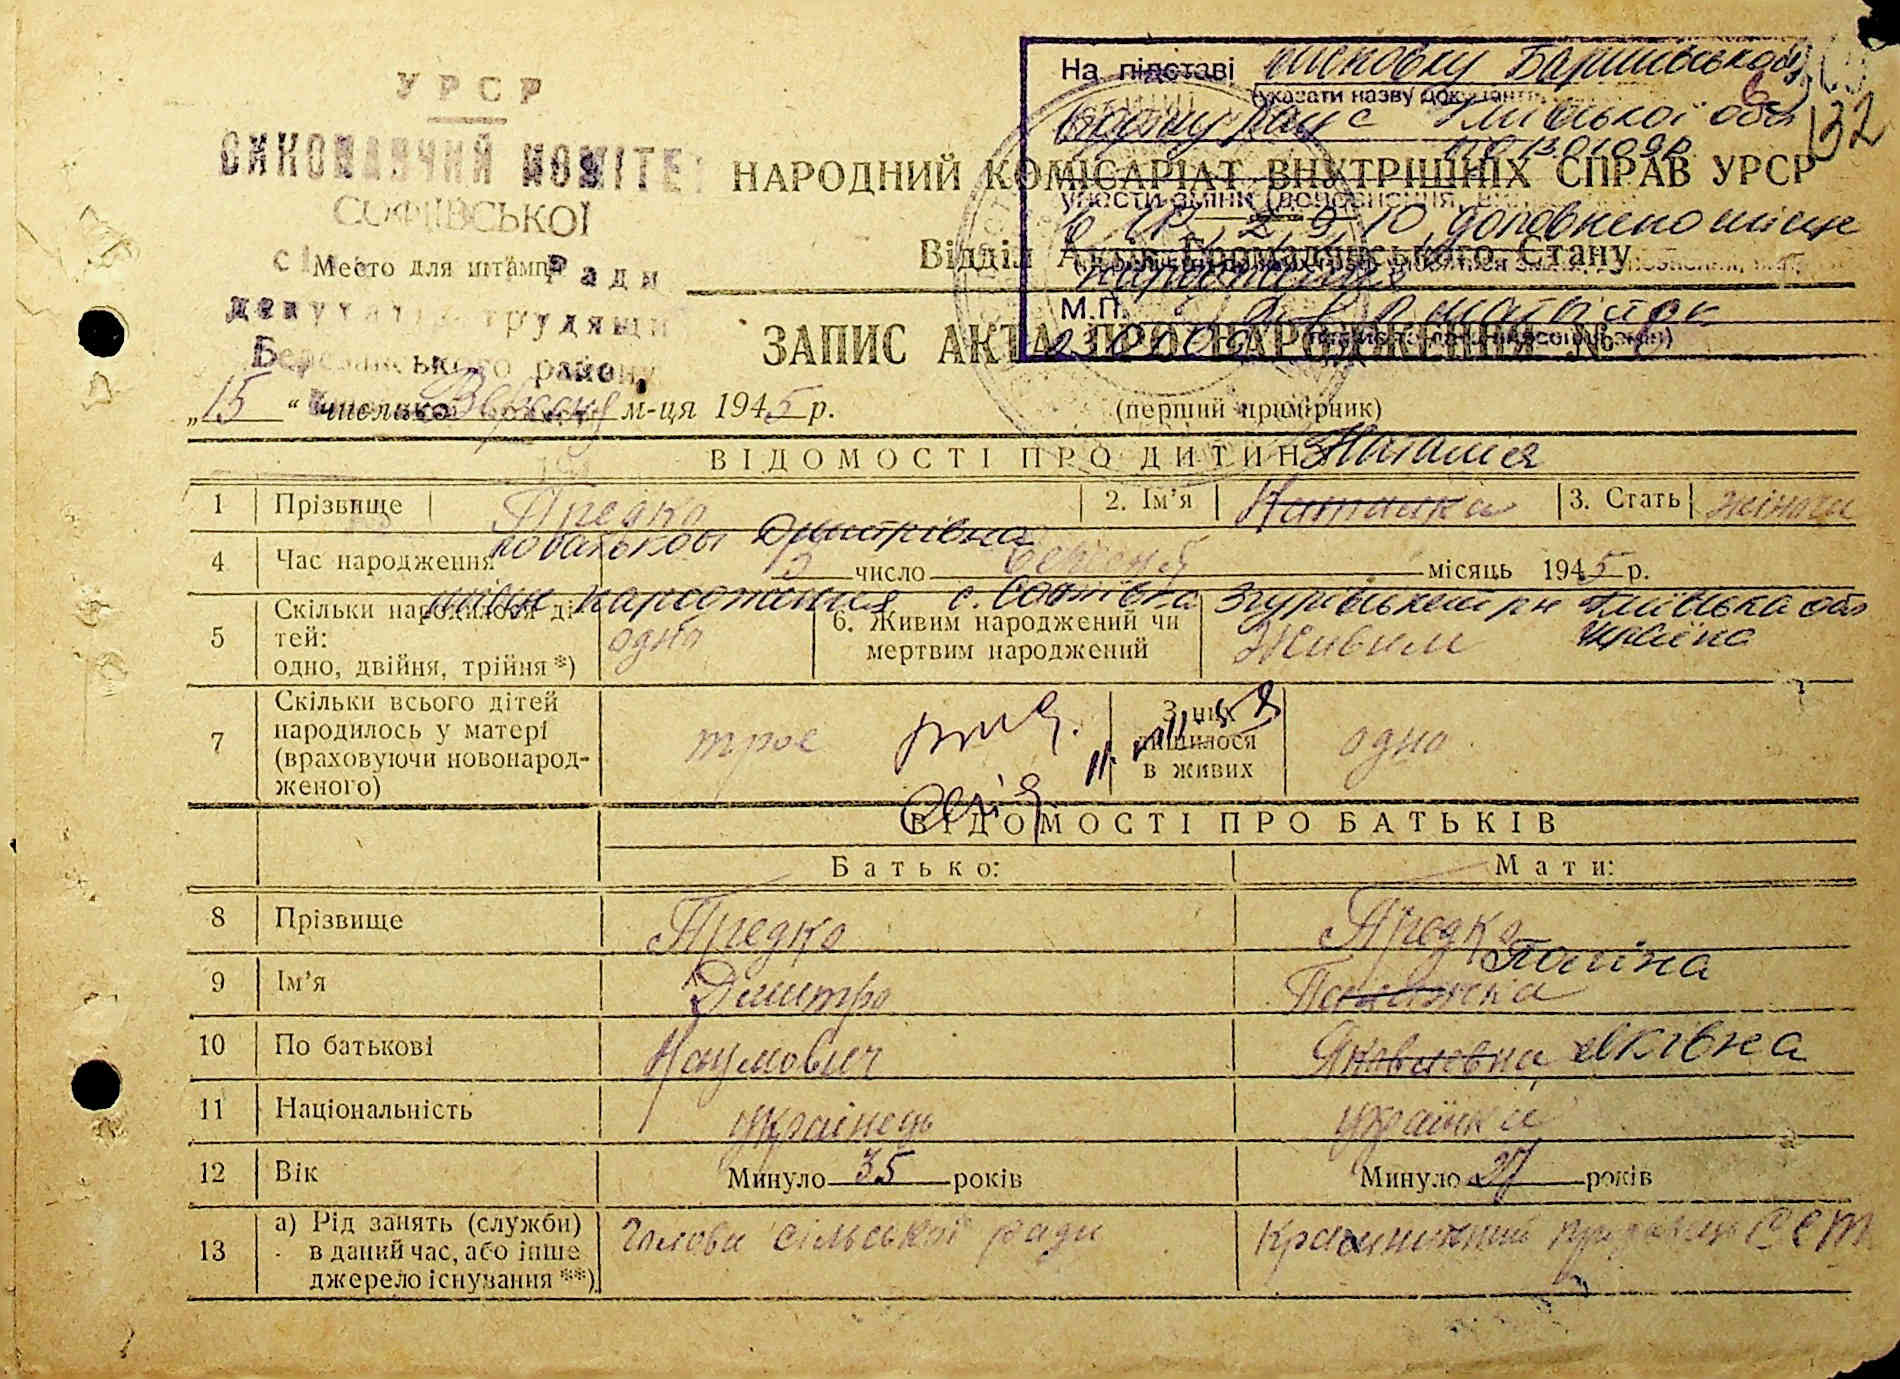 УРСР
ВИКОНАВЧИЙ КОМІТЕТ
СОФІЇВСЬКОЇ
Ради
Место для штампа
депутатів трудящи
Березанського району,
На підставі висновку Баришівського
(указати назву документа
відділу Київської обл
від 13.01.09р
унести зміни (доповнення,
в гр. 2, 9, 10, доповнено місце
народження
М.П.
132
НАРОДНИЙ КОМІСАРІАТ ВНУТРІШНІХ СПРАВ УРСР
Відділ Актів Громадянського Стану
ЗАПИС АКТА ПРО НАРОДЖЕННЯ №
„15“ числа Вересня м-ця 1945 р.
(перший примірник)
ВІДОМОСТІ ПРО ДИТИНУ
Наталія
1 Прізвище Предко 2. Ім’я Наталка 3. Стать жіноча
по батькові Дмитрівна
4 Час народження число місяць 1945 р.
місце народження с. Софіївка Згурівський р-н Київська обл
Україна
5 Скільки народилося ді-
тей:
одно, двійня, трійня *) одно
6. Живим народжений чи
мертвим народжений Живим
7 Скільки всього дітей
народилось у матері
(враховуючи новонарод-
женого) троє
З них
лишилося
в живих одно
ВІДОМОСТІ ПРО БАТЬКІВ
Батько: Мати:
8 Прізвище Предко Предко
Поліна
9 Ім’я Дмитро Палажка
10 По батькові Наумович Яковлевна Яківна
11 Національність українець українка
12 Вік Минуло 35 років Минуло 27 років
13 а) Рід занять (служби)
в даний час, або інше
джерело існування **) Голова сільської ради продавець ССТ